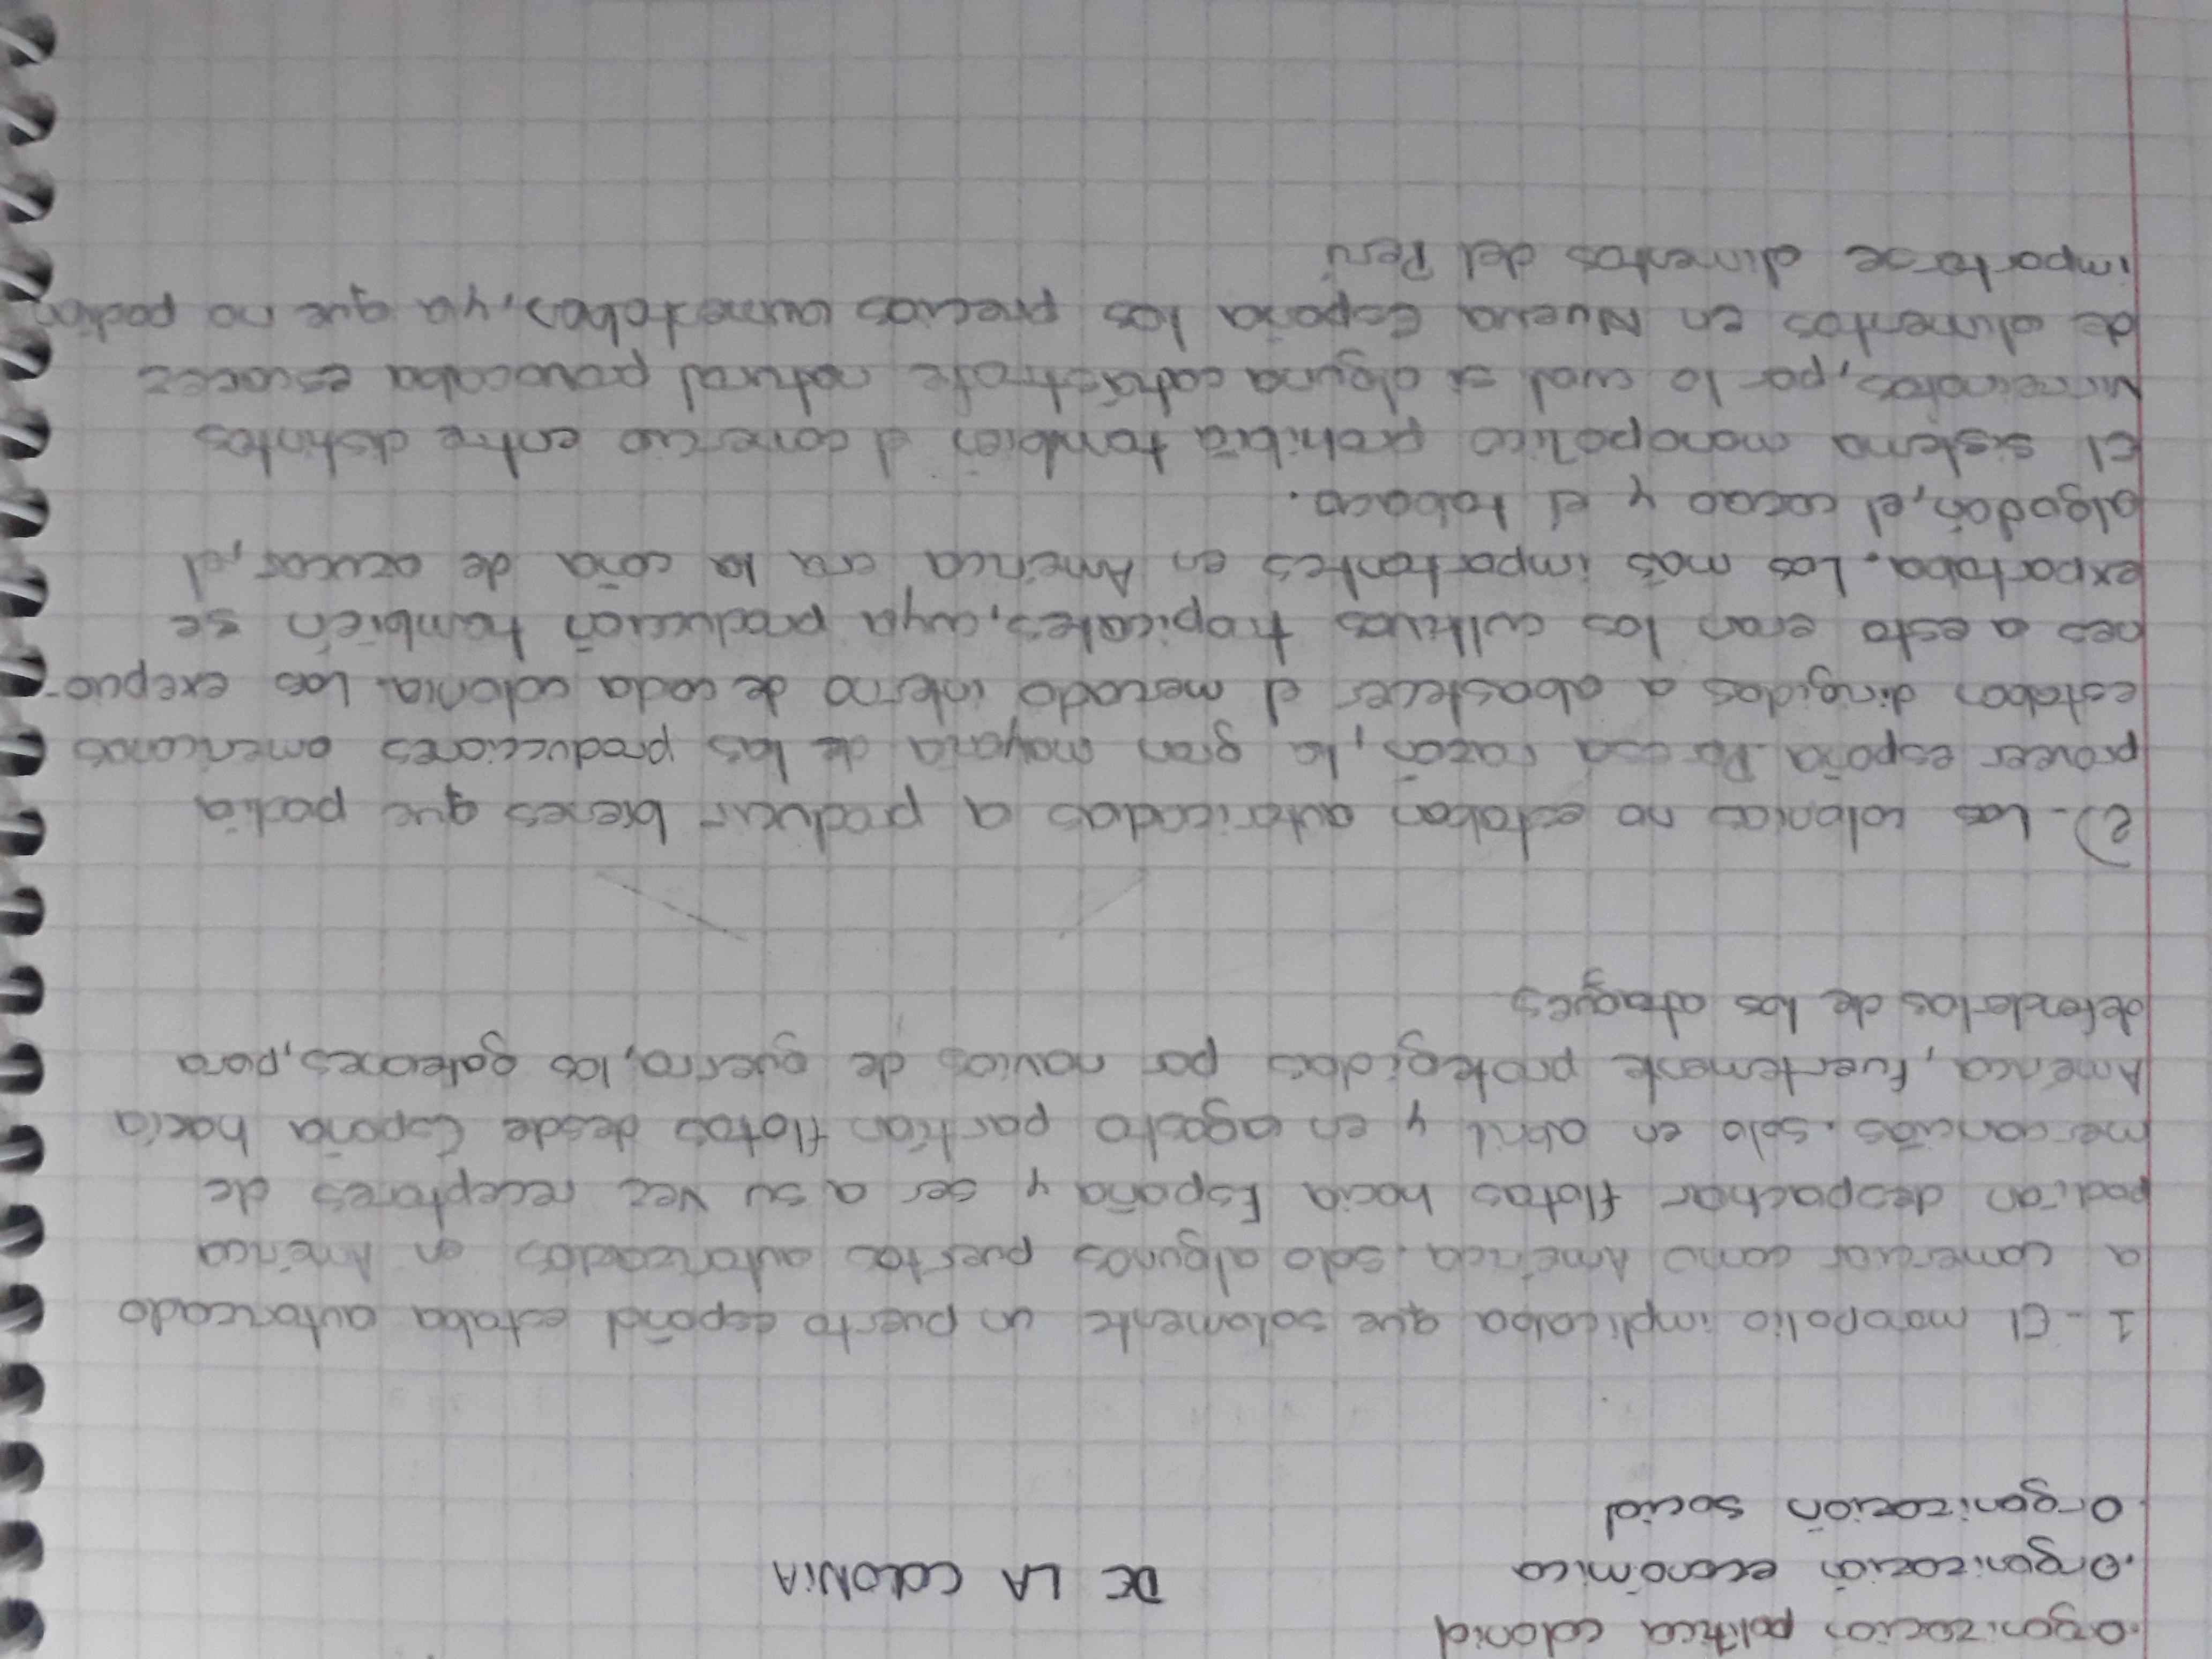 .Organización política colonial
.Organización económica
DE LA COLONIA
.Organización social
1- El monopolio implicaba que solamente un puerto español estaba autorizado
a comerciar como América. solo algunos puertos autorizados en América
podían despachar flotas hacia España y ser a su vez receptores de
mercancías. solo en abril y en agosto partían flotas desde España hacía
América, fuertemente protegidas por navios de guerra, los galeones, para
defenderlos de los ataques
2)- Las colonias no estaban autorizadas a producir bienes que podía
proveer españa. Por esa razón, la gran mayoría de las producciones americanas
estaban dirigidas a abastecer el mercado interno de cada colonia. Las exepcio-
nes a esto eran los cultivos tropicales, cuya producción también se
exportaba. Los más importantes en América era la caña de azucar, el
algodón, el cacao y el tabaco.
El sistema monopolico prohibía también el comercio entre distintos
virreinatos, por lo cual si alguna catástrofe natural provocaba escacez
de alimentos en Nueva España los precios aumentaban, ya que no podían
importarse alimentos del Perú